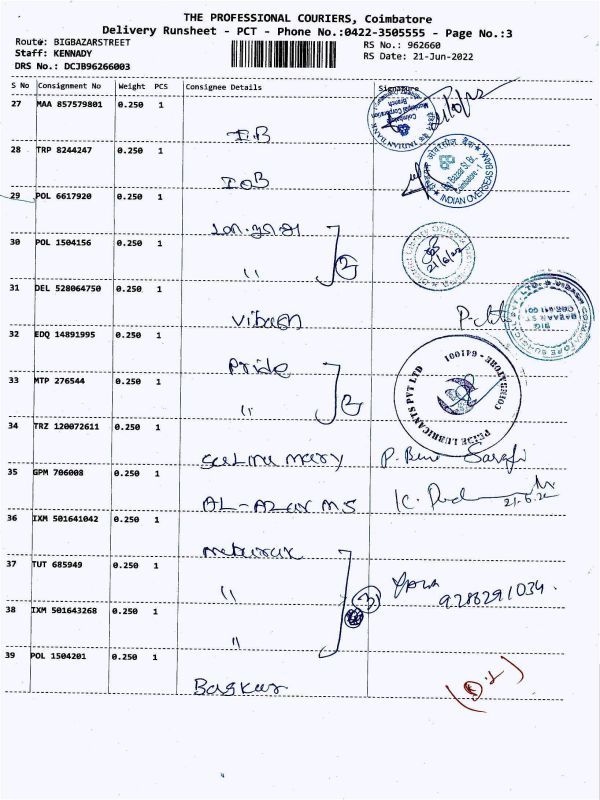 THE PROFESSIONAL COURIERS, Coimbatore
Delivery Runsheet - PCT - Phone No.:0422-3505555 - Page No.:3
Route: BIGBAZARSTREET
Staff: KENNADY
DRS No.: DCJB96266003
RS No.: 962660
RS Date: 21-Jun-2022
S No Consignment No Weight PCS Consignee Details Signature
27 MAA 857579801 0.250 1
I.B
INDIAN BANK
Coimbatore
28 TRP 8244247 0.250 1
IOB
INDIAN OVERSEAS BANK
Coimbatore - 1
29 POL 6617920 0.250 1
30 POL 1504156 0.250 1
"
2
21/6/22
31 DEL 528064750 0.250 1
32 EDQ 14891995 0.250 1
Pride
33 MTP 276544 0.250 1
"
2
COIMBATORE - 641001
LUBRICANTS PVT LTD
34 TRZ 120072611 0.250 1
Salma mary
35 GPM 706008 0.250 1
AL-AZAR MS
21.6.22
36 IXM 501641042 0.250 1
37 TUT 685949 0.250 1
"
3
38 IXM 501643268 0.250 1
"
39 POL 1504201 0.250 1
Baskar